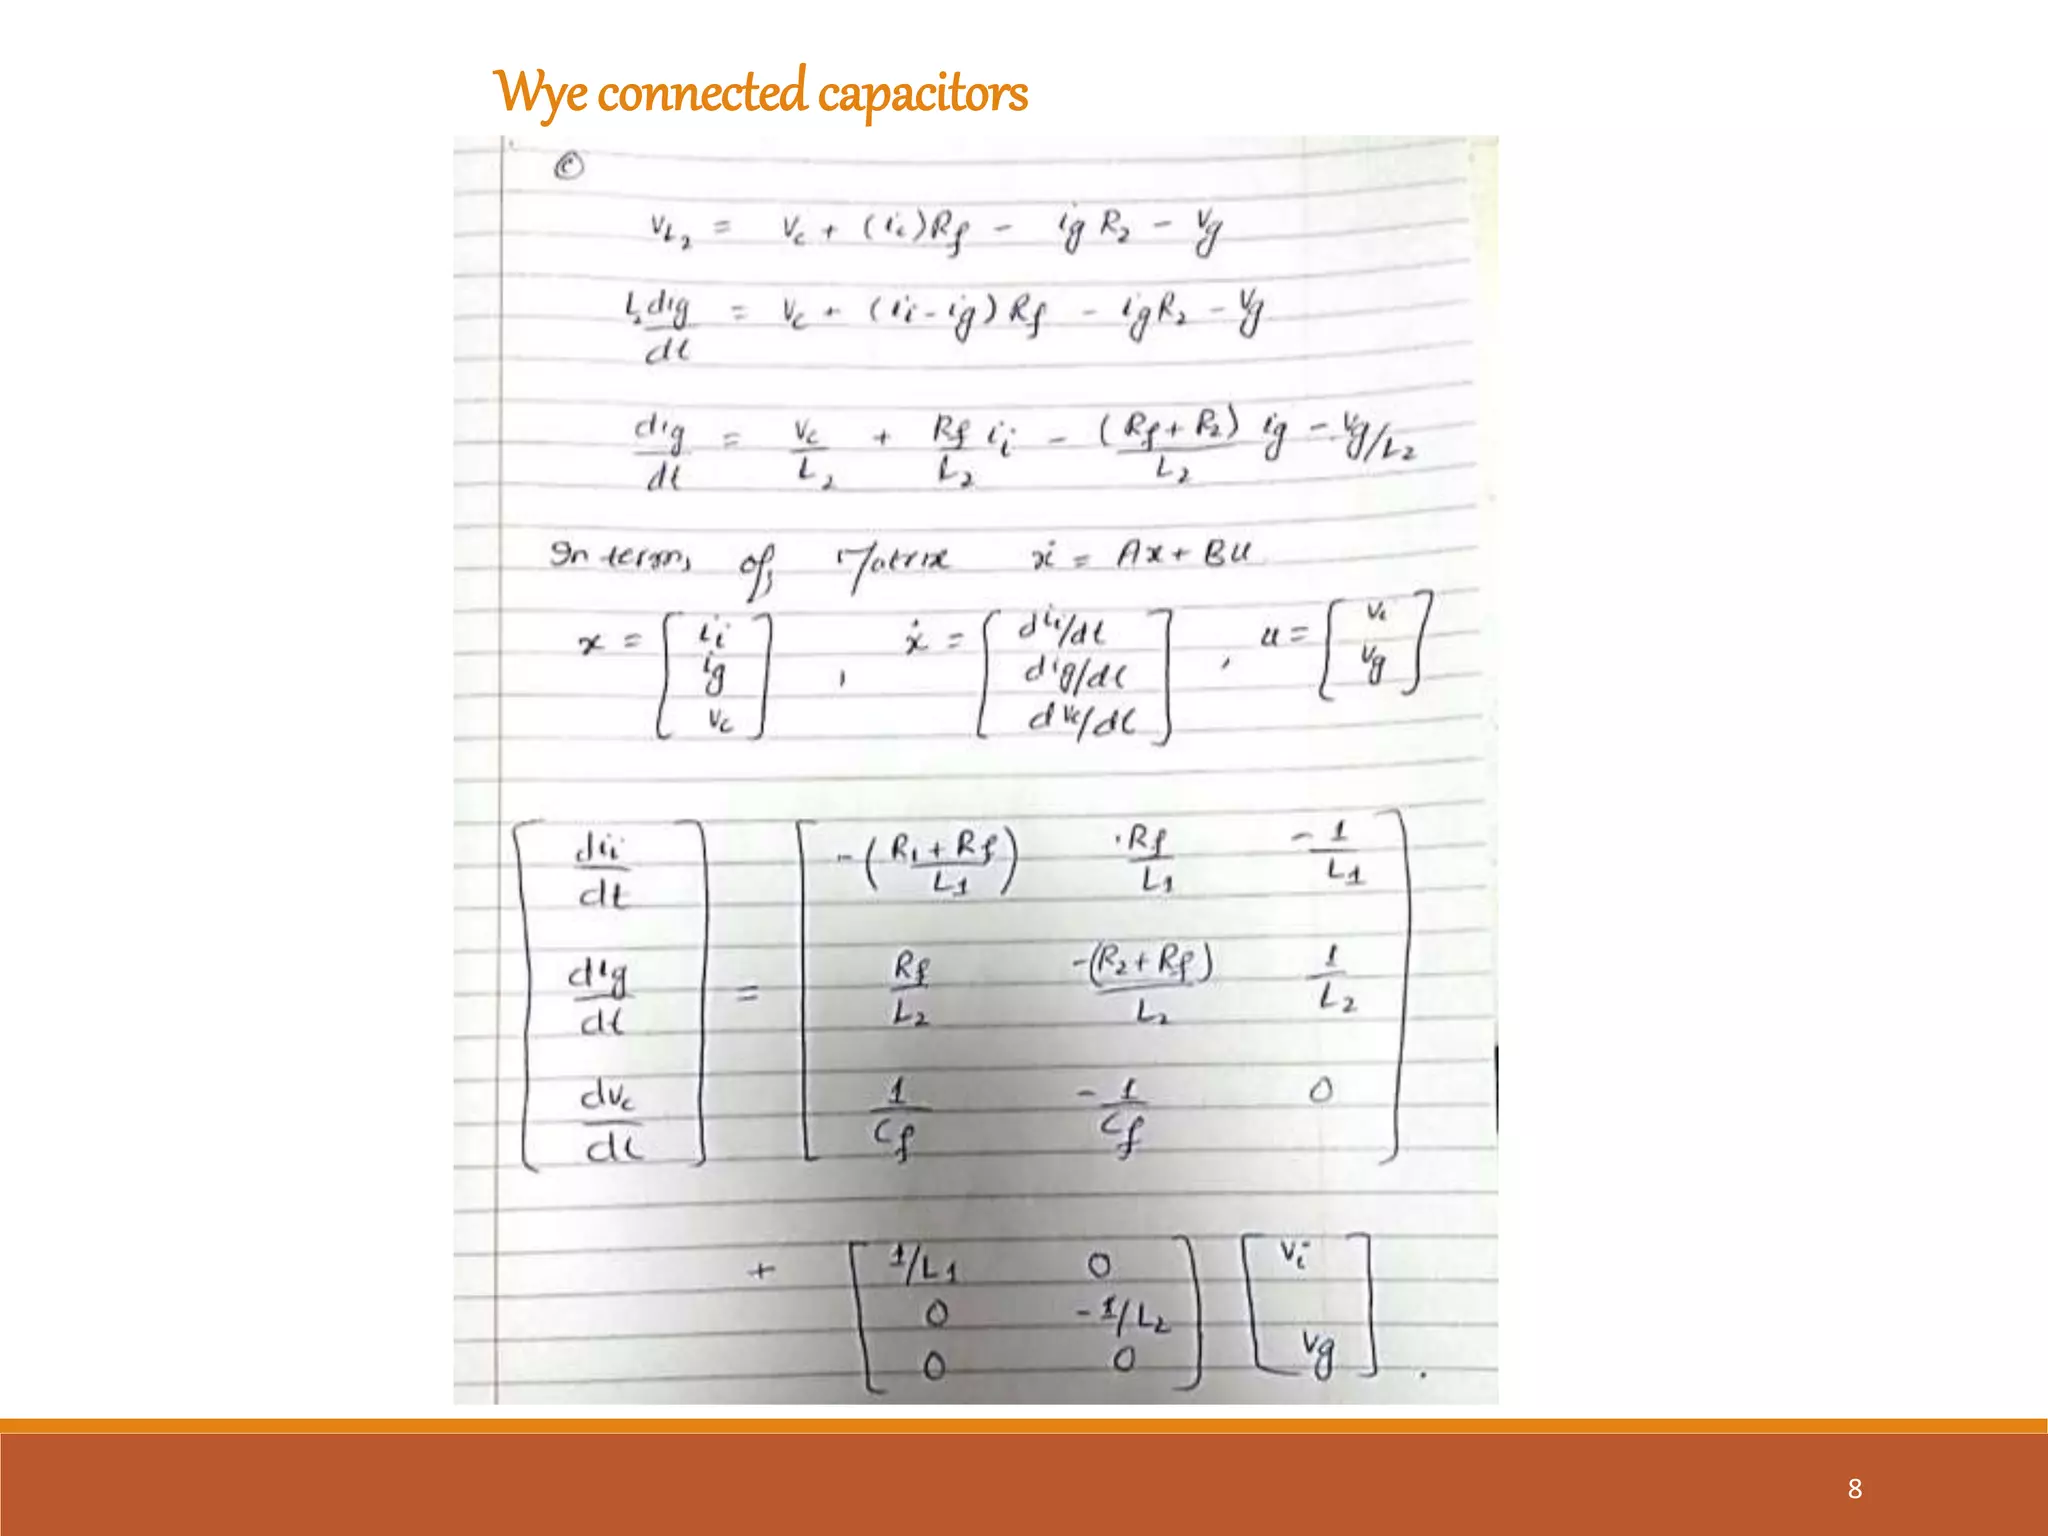 Wye connected capacitors
©
vL2 = vc + (ic)Rf - ig R2 - vg
L2 dig/dt = vc + (ii - ig) Rf - ig R2 - vg
dig/dt = vc/L2 + Rf/L2 ii - (Rf + R2)/L2 ig - vg/L2
In terms of Matrix ẋ = Ax + Bu
x = [ii ig vc], ẋ = [dii/dt dig/dt dvc/dt], u = [vi vg]
[dii/dt dig/dt dvc/dt] = [-(R1 + Rf / L1) Rf/L1 -1/L1
Rf/L2 -(R2 + Rf)/L2 1/L2
1/Cf -1/Cf 0]
+ [1/L1 0
0 -1/L2
0 0] [vi vg].
8